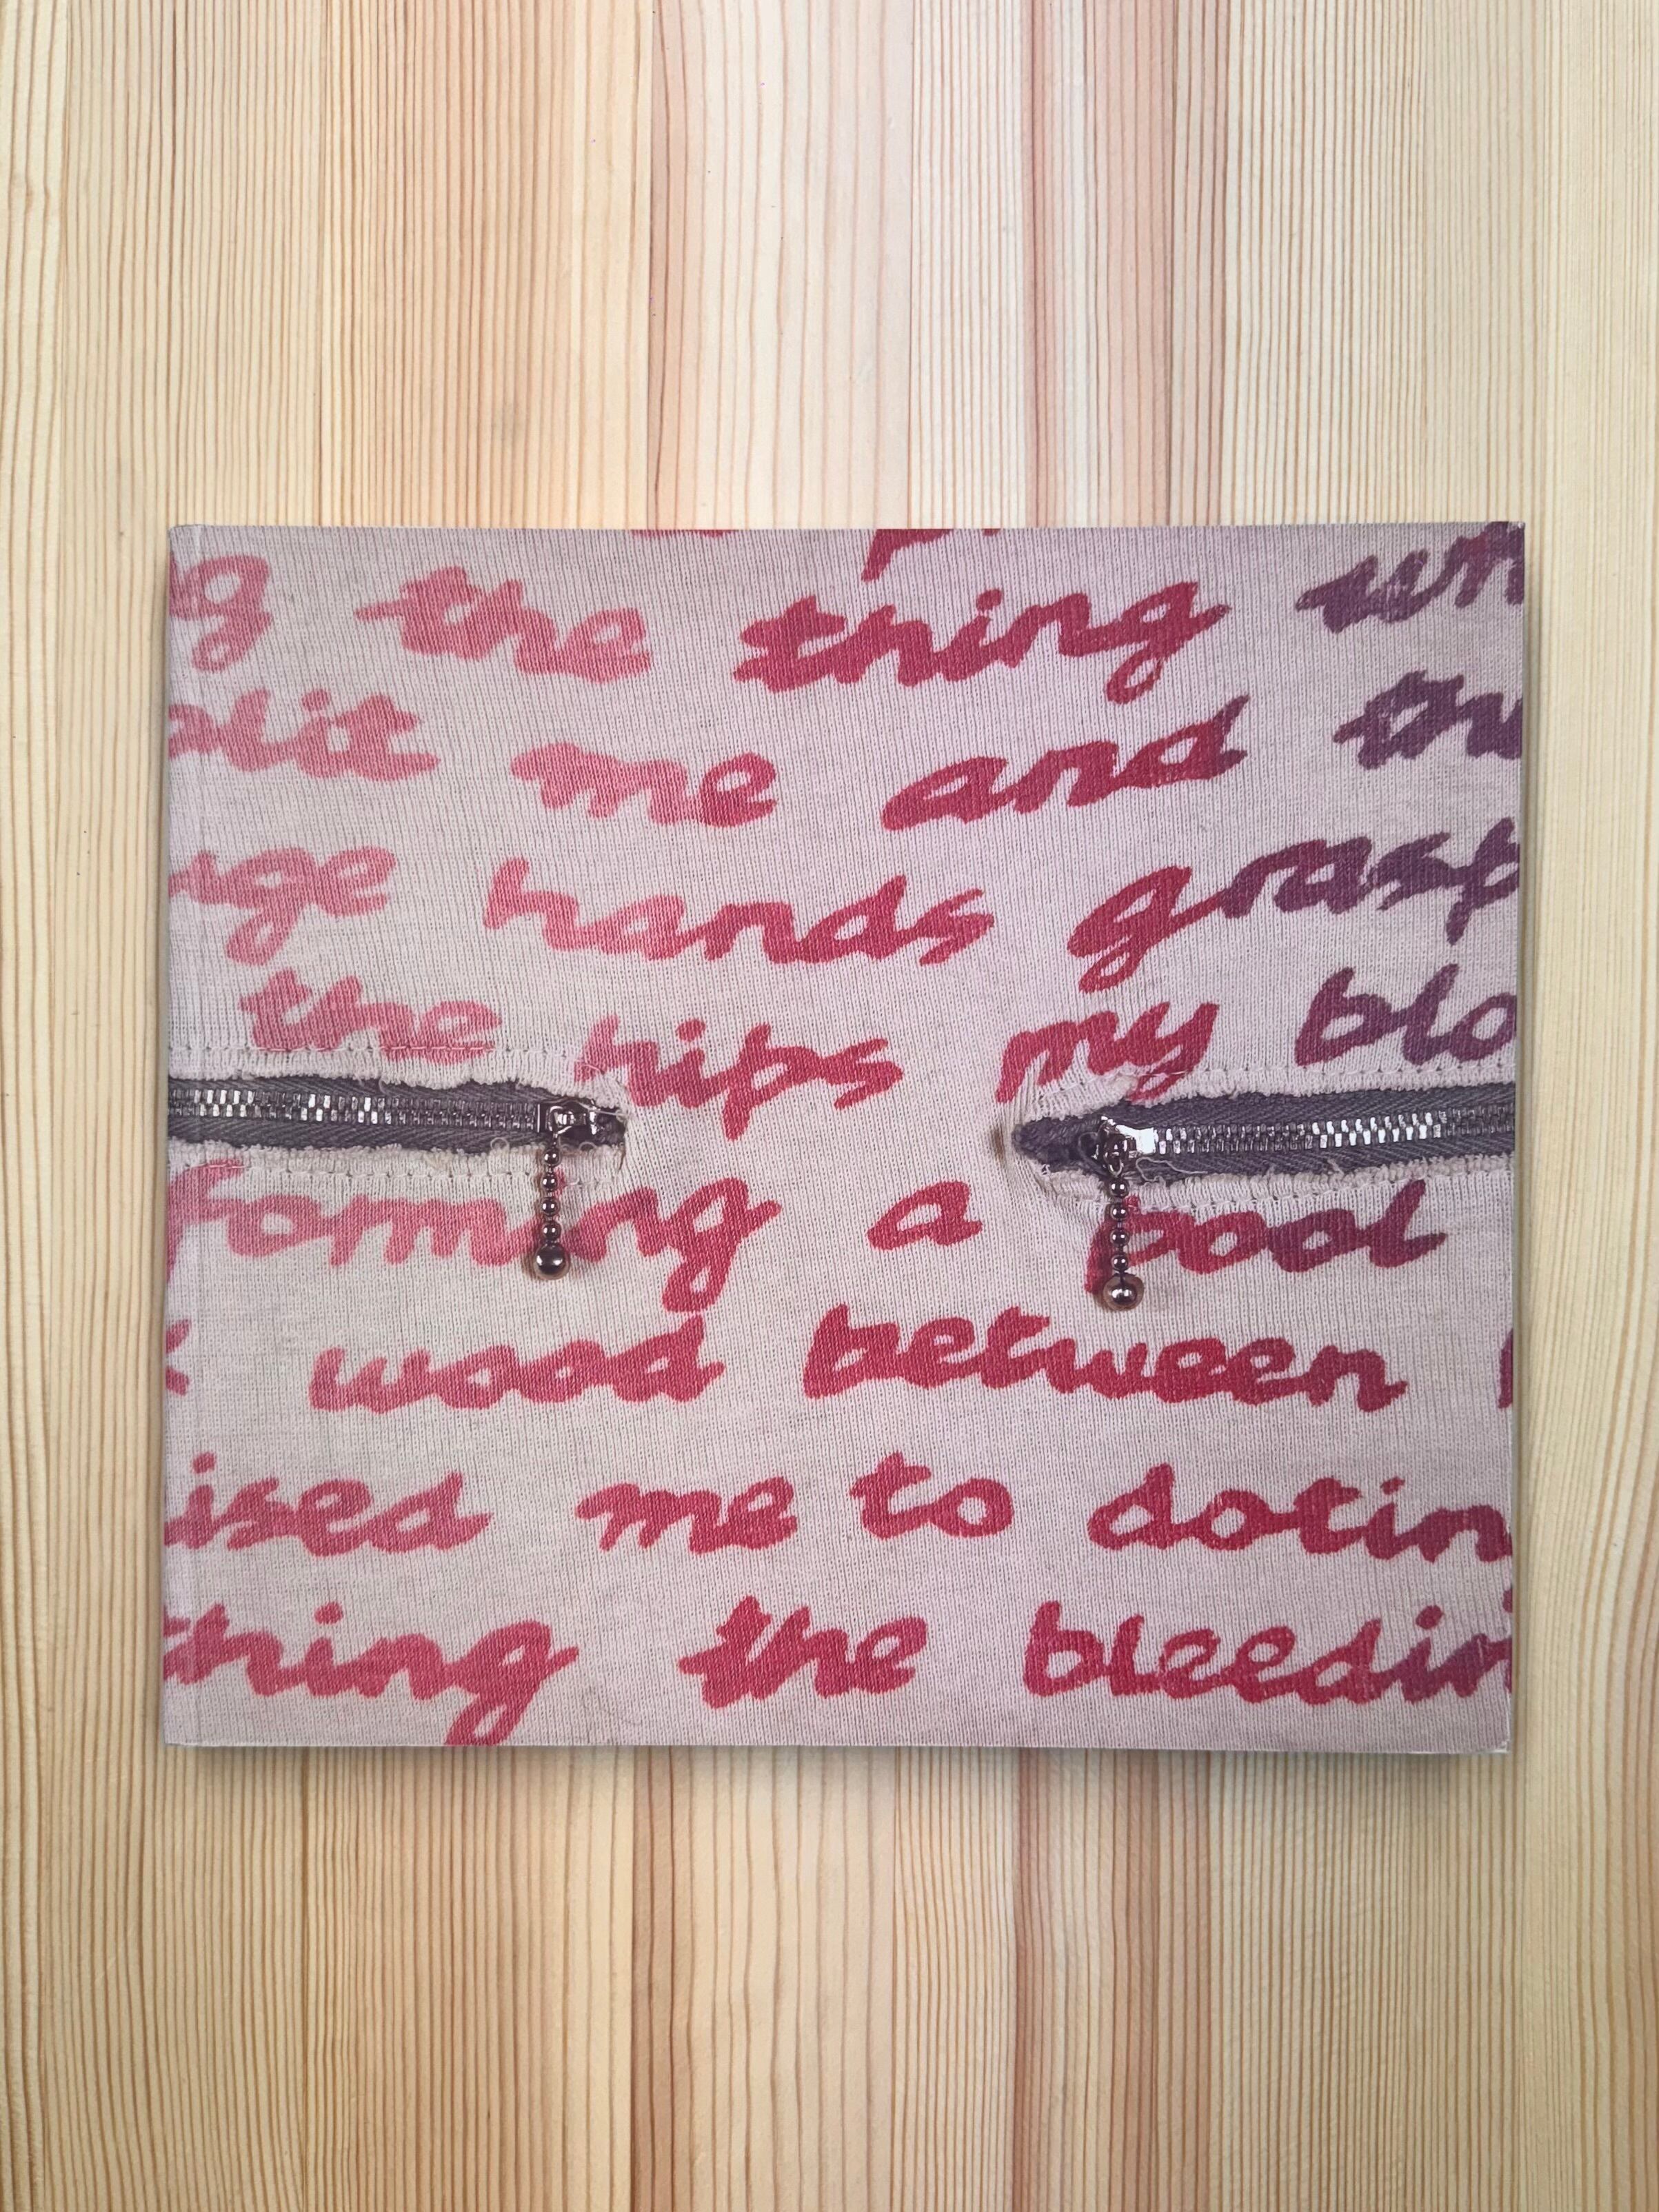 g the thing wh
plit me and thr
ge hands grasp
the hips my blo
forming a pool
wood between
ised me to dotin
thing the bleedin